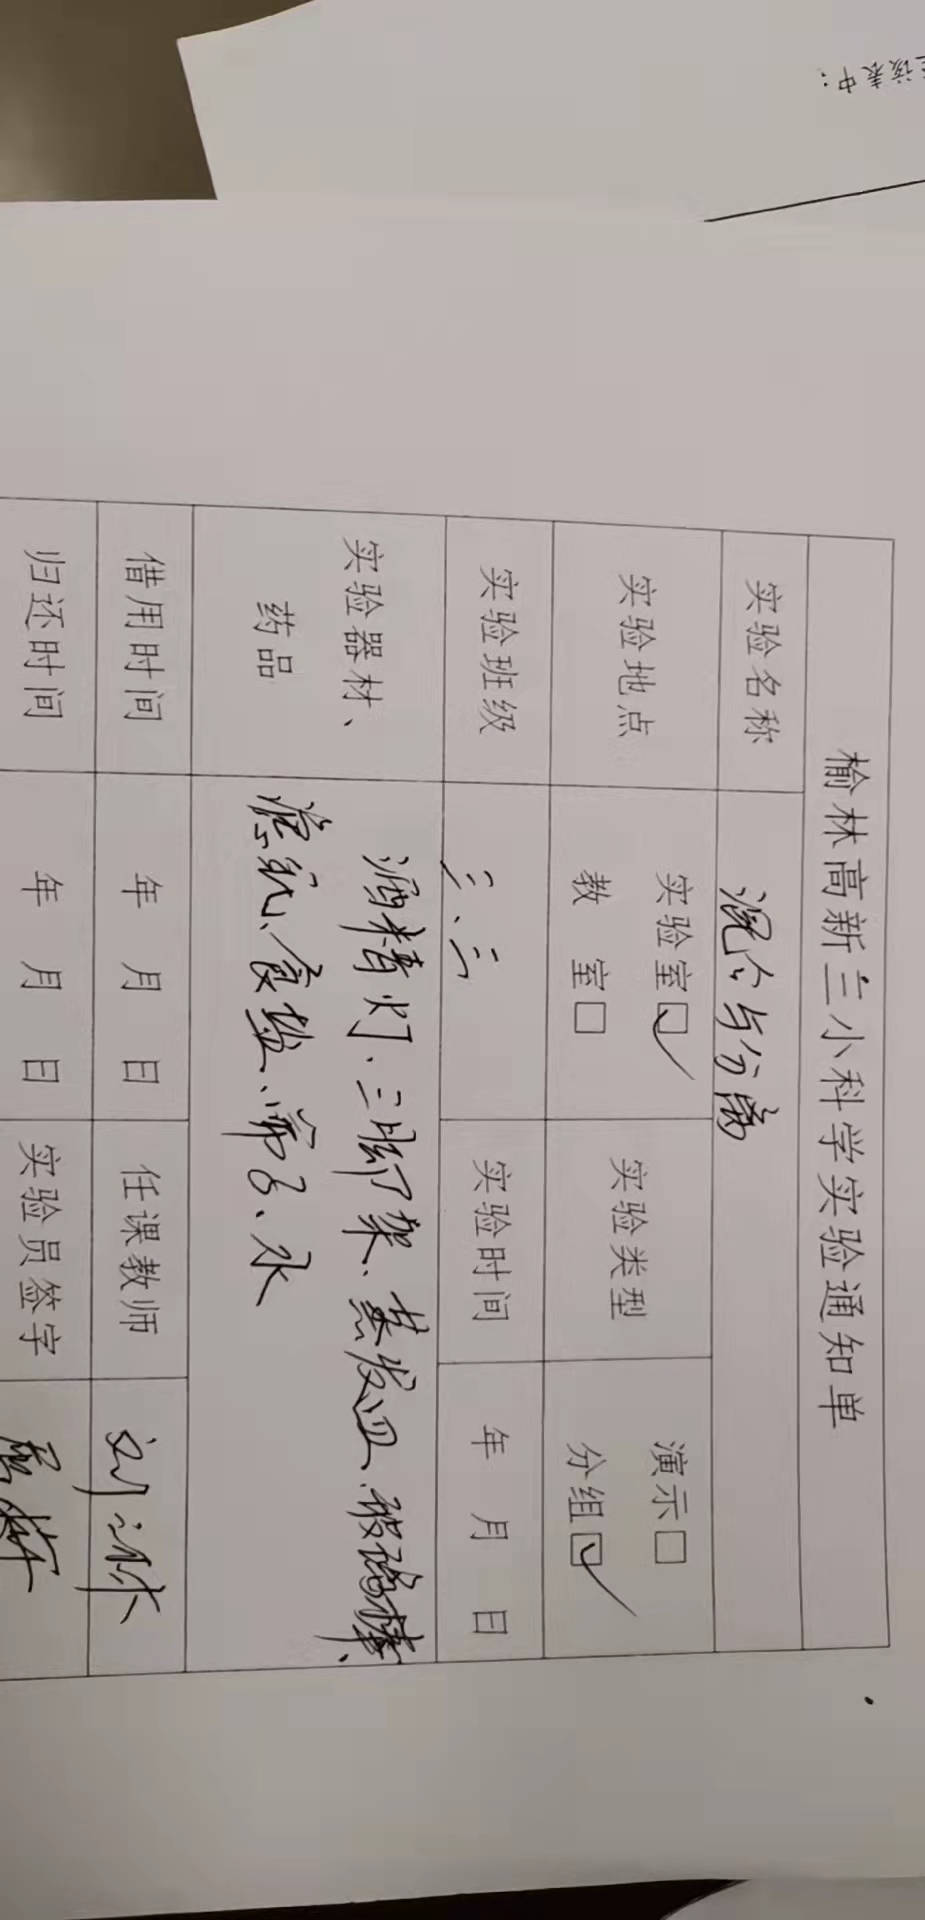 该表中：
榆林高新三小科学实验通知单
实验名称 混合与分离
实验地点 实验室☑ 教 室□ 实验类型 演示□ 分组☑
实验班级 三、三 实验时间 年 月 日
实验器材、药品 酒精灯、三脚架、蒸发皿、玻璃棒、
滤纸、食盐、筛子、水
借用时间 年 月 日 任课教师 刘
归还时间 年 月 日 实验员签字